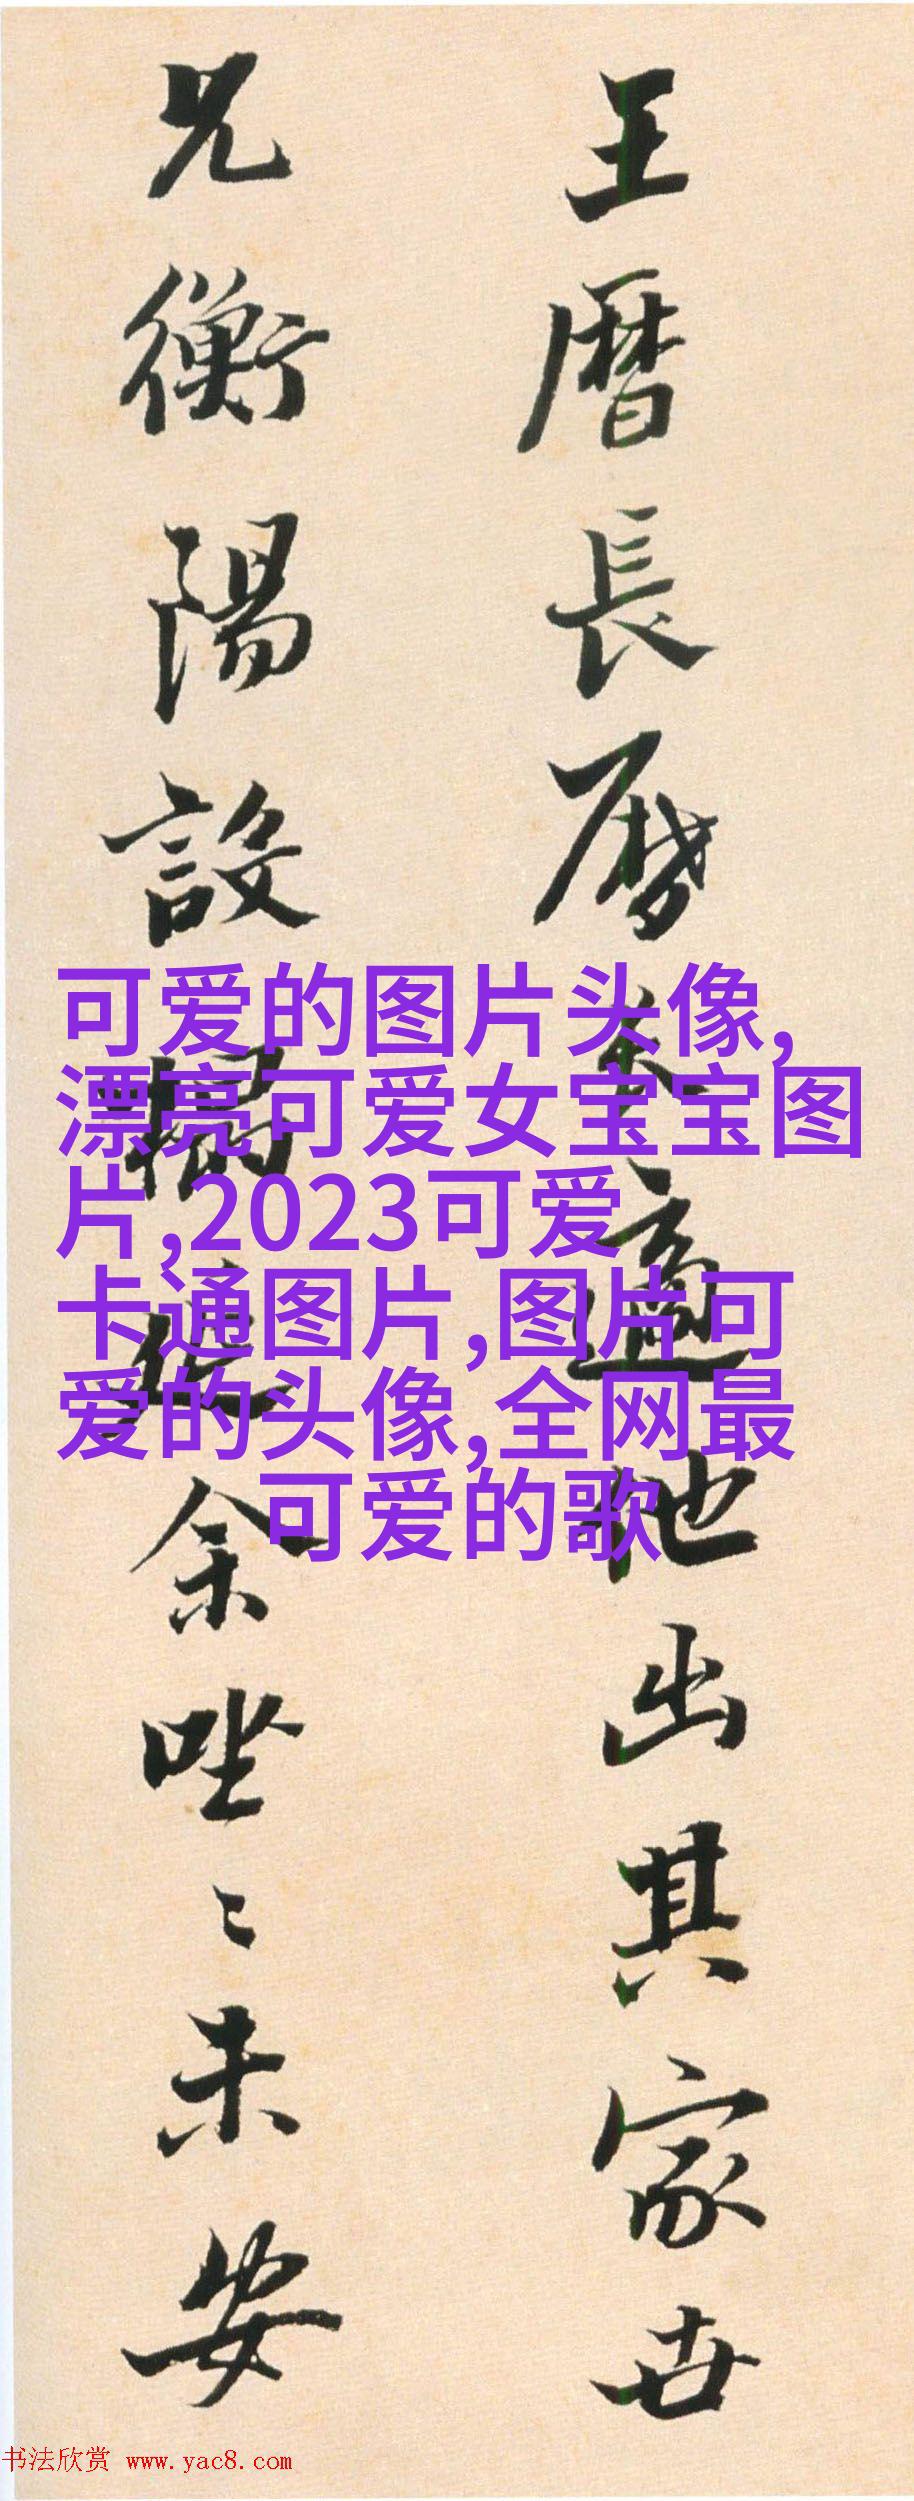 王曆長曆大適他出其家世
兄衡陽設榻延余坐〻未安
可爱的图片头像,
漂亮可爱女宝宝图
片,2023可爱
卡通图片,图片可
爱的头像,全网最
可爱的歌
书法欣赏 www.yac8.com